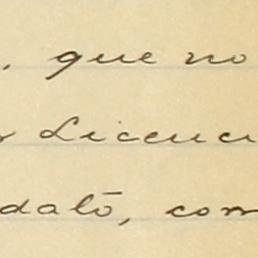 , que no
Licenci
dató, com